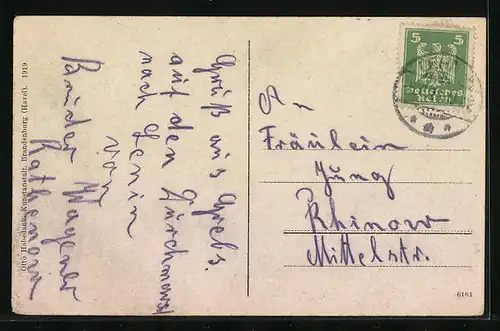 Gruß aus Grebs.
auf den Durchmarsch
nach Lenin
von
Brüder Wagener
Rathenow
An
Fräulein
Jung
Rhinow
Mittelstr.
5 5
Deutsches
Reich
Otto Habedank, Kunstanstalt, Brandenburg (Havel). 1919
6161